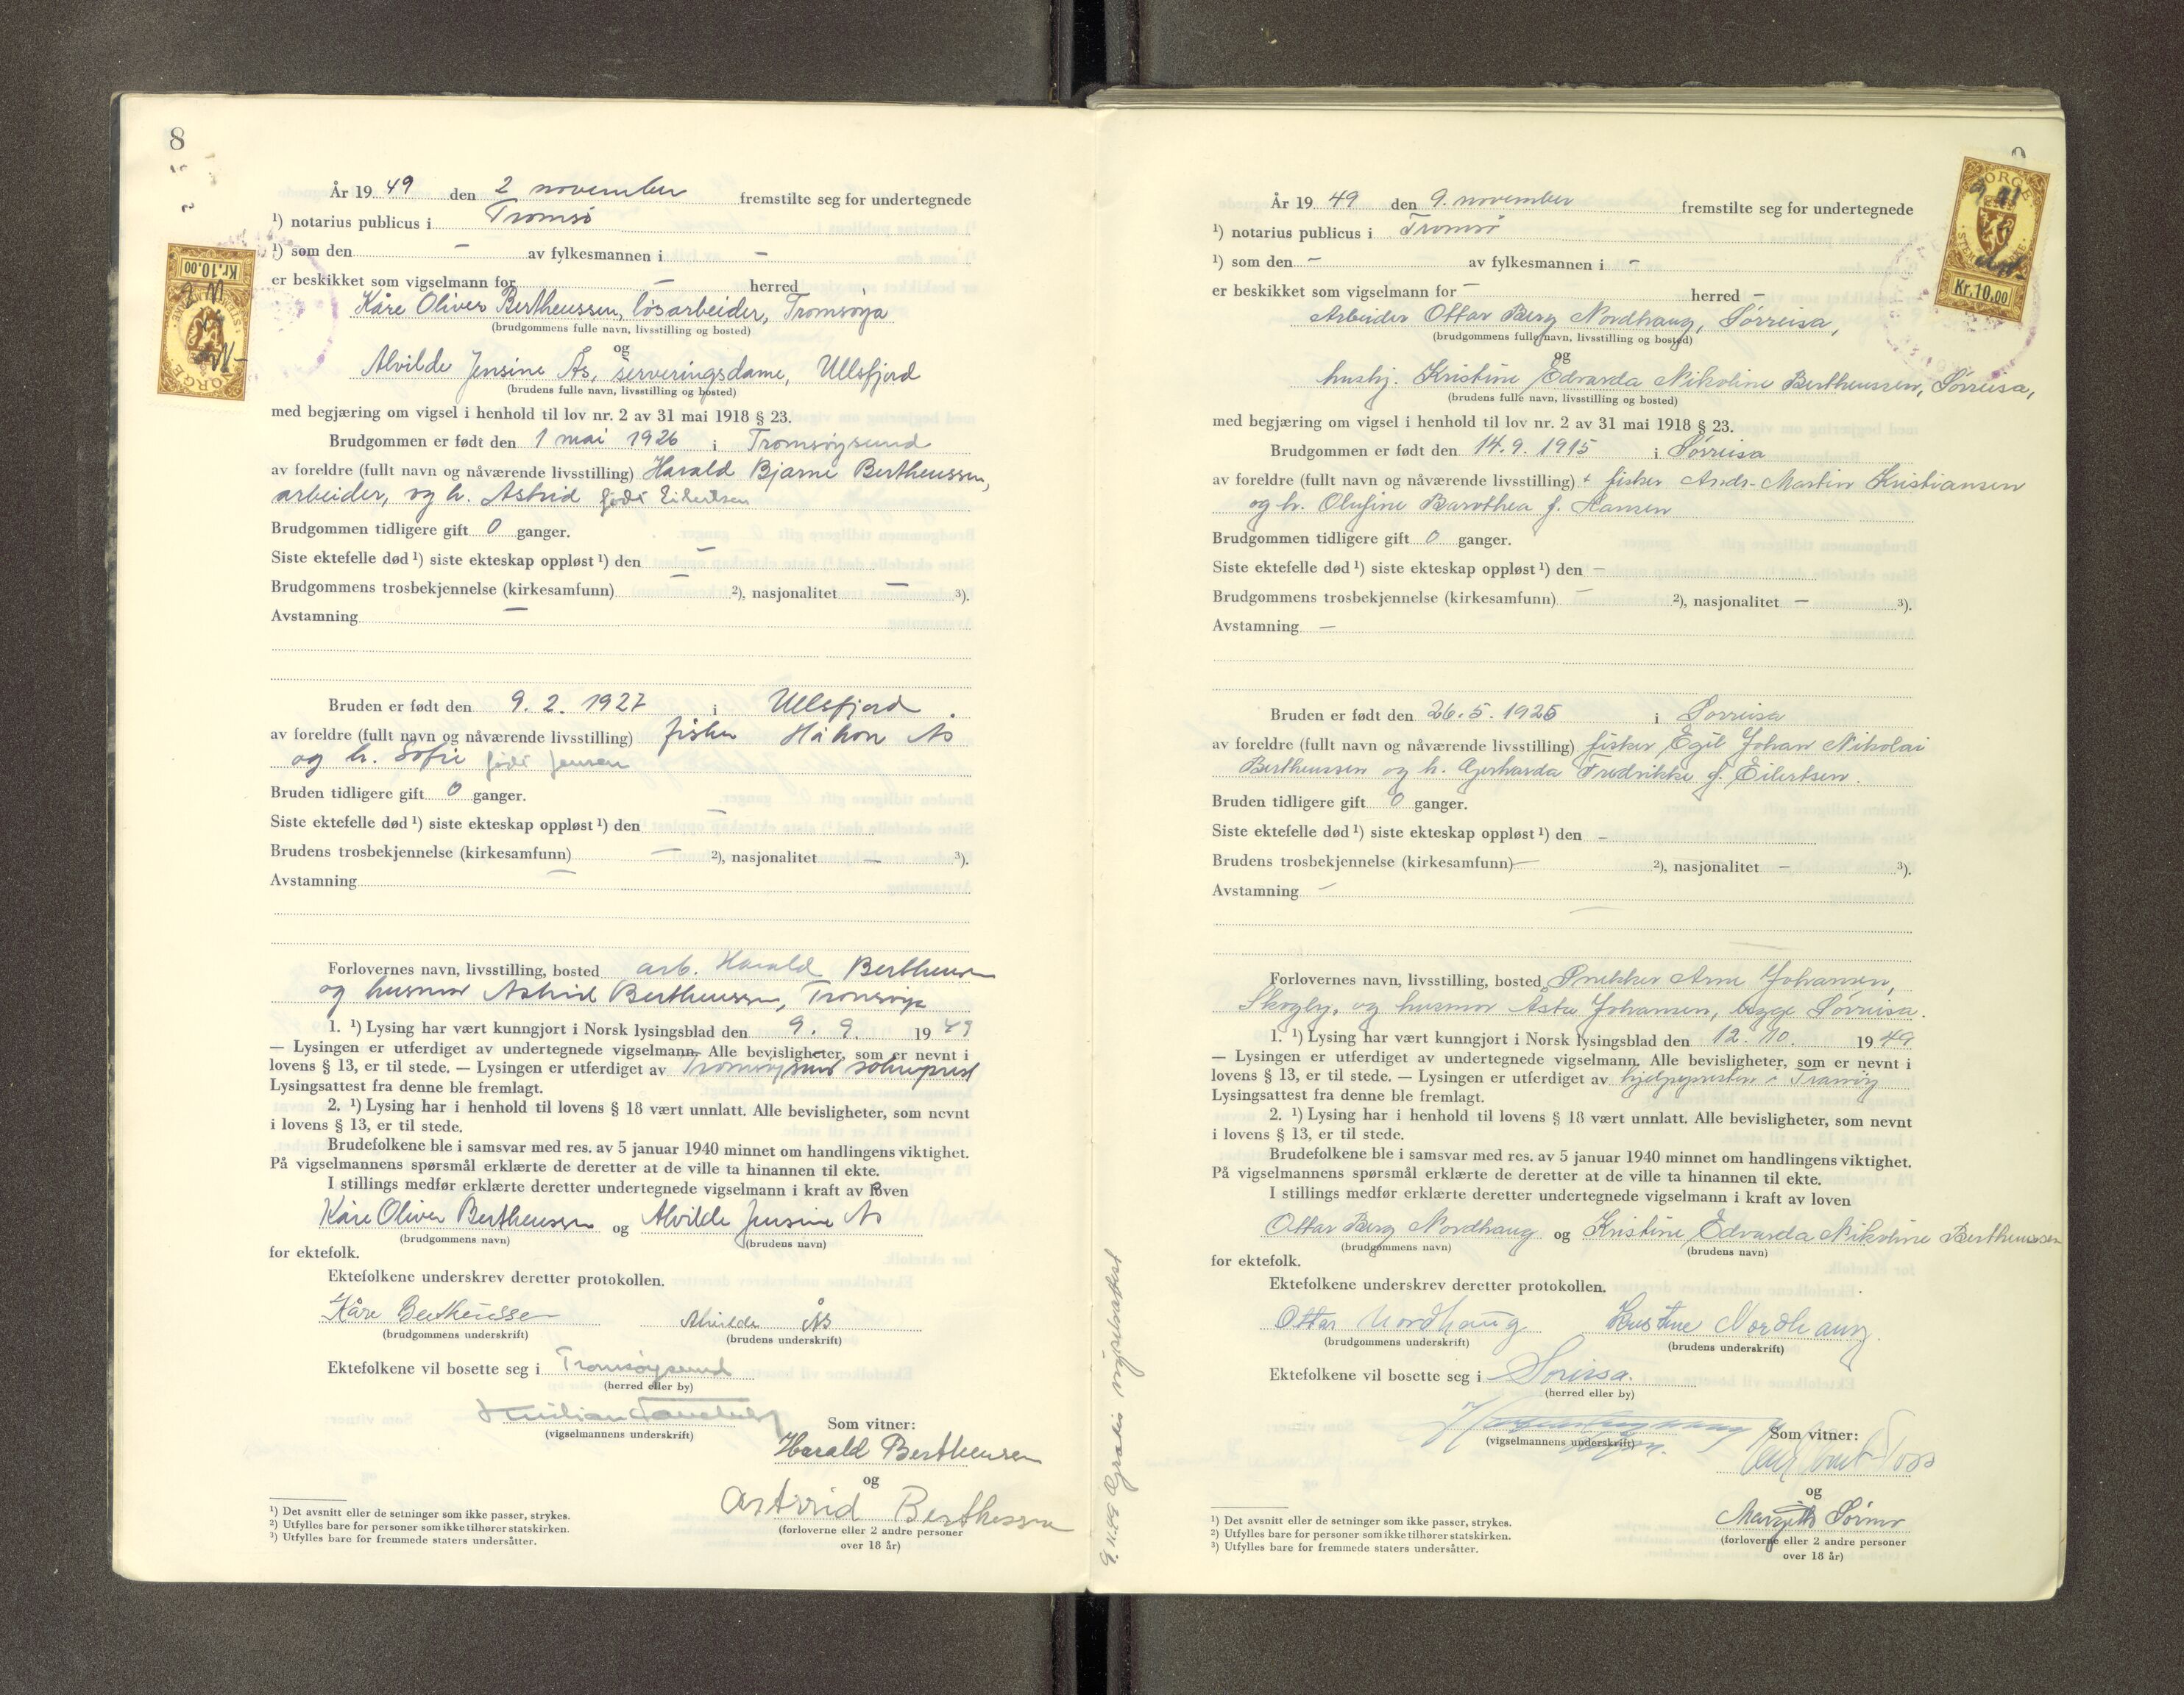 8
År 19 49 den 2 november fremstilte seg for undertegnede
¹) notarius publicus i Tromsø
¹) som den – av fylkesmannen i –
er beskikket som vigselmann for – herred
Kåre Oliver Bertheussen, løsarbeider, Tromsøya
(brudgommens fulle navn, livsstilling og bosted)
og
Alvilde Jensine Ås, serveringsdame, Ullsfjord
(brudens fulle navn, livsstilling og bosted)
med begjæring om vigsel i henhold til lov nr. 2 av 31 mai 1918 § 23.
Brudgommen er født den 1 mai 1926 i Tromsøysund
av foreldre (fullt navn og nåværende livsstilling) Harald Bjarne Bertheussen,
arbeider, og h. Astrid født Eilertsen
Brudgommen tidligere gift 0 ganger.
Siste ektefelle død ¹) siste ekteskap oppløst ¹) den –
Brudgommens trosbekjennelse (kirkesamfunn) – ²), nasjonalitet – ³).
Avstamning –
Bruden er født den 9. 2. 1927 i Ullsfjord.
av foreldre (fullt navn og nåværende livsstilling) fisker Håkon Ås
og h. Sofie født Jensen
Bruden tidligere gift 0 ganger.
Siste ektefelle død ¹) siste ekteskap oppløst ¹) den –
Brudens trosbekjennelse (kirkesamfunn) – ²), nasjonalitet – ³).
Avstamning –
Forlovernes navn, livsstilling, bosted arb. Harald Bertheussen
og husmor Astrid Bertheussen, Tromsøya
1. ¹) Lysing har vært kunngjort i Norsk lysingsblad den 9. 9. 19 49
— Lysingen er utferdiget av undertegnede vigselmann. Alle bevisligheter, som er nevnt i
lovens § 13, er til stede. — Lysingen er utferdiget av Tromsøysund sokneprest
Lysingsattest fra denne ble fremlagt.
2. ¹) Lysing har i henhold til lovens § 18 vært unnlatt. Alle bevisligheter, som nevnt
i lovens § 13, er til stede.
Brudefolkene ble i samsvar med res. av 5 januar 1940 minnet om handlingens viktighet.
På vigselmannens spørsmål erklærte de deretter at de ville ta hinannen til ekte.
I stillings medfør erklærte deretter undertegnede vigselmann i kraft av loven
Kåre Oliver Bertheussen og Alvilde Jensine Ås
(brudgommens navn) (brudens navn)
for ektefolk.
Ektefolkene underskrev deretter protokollen.
Kåre Bertheussen Alvilde Ås
(brudgommens underskrift) (brudens underskrift)
Ektefolkene vil bosette seg i Tromsøysund
(herred eller by)
(vigselmannens underskrift) Som vitner:
Harald Bertheussen
og
Astrid Bertheussen
(forloverne eller 2 andre personer
over 18 år)
¹) Det avsnitt eller de setninger som ikke passer, strykes.
²) Utfylles bare for personer som ikke tilhører statskirken.
³) Utfylles bare for fremmede staters undersåtter.
Kr.10.00
NORGE
År 19 49 den 9. november fremstilte seg for undertegnede
¹) notarius publicus i Tromsø
¹) som den – av fylkesmannen i –
er beskikket som vigselmann for – herred –
Arbeider Ottar Berg Nordhaug, Sørreisa,
(brudgommens fulle navn, livsstilling og bosted)
og
hushj. Kristine Edvarda Nikoline Bertheussen, Sørreisa,
(brudens fulle navn, livsstilling og bosted)
med begjæring om vigsel i henhold til lov nr. 2 av 31 mai 1918 § 23.
Brudgommen er født den 14. 9. 1915 i Sørreisa
av foreldre (fullt navn og nåværende livsstilling) + fisker Andr. Martin Kristiansen
og h. Olufine Barothea f. Hansen
Brudgommen tidligere gift 0 ganger.
Siste ektefelle død ¹) siste ekteskap oppløst ¹) den –
Brudgommens trosbekjennelse (kirkesamfunn) – ²), nasjonalitet – ³).
Avstamning –
Bruden er født den 26. 5. 1925 i Sørreisa
av foreldre (fullt navn og nåværende livsstilling) fisker Egil Johan Nikolai
Bertheussen og h. Gerharda Fredrikke f. Eilertsen.
Bruden tidligere gift 0 ganger.
Siste ektefelle død ¹) siste ekteskap oppløst ¹) den –
Brudens trosbekjennelse (kirkesamfunn) – ²), nasjonalitet – ³).
Avstamning –
Forlovernes navn, livsstilling, bosted Snekker Arne Johansen,
Skogly, og husmor Asta Johansen, begge Sørreisa.
1. ¹) Lysing har vært kunngjort i Norsk lysingsblad den 12. 10. 19 49
— Lysingen er utferdiget av undertegnede vigselmann. Alle bevisligheter, som er nevnt i
lovens § 13, er til stede. — Lysingen er utferdiget av hjelpepresten i Tranøy
Lysingsattest fra denne ble fremlagt.
2. ¹) Lysing har i henhold til lovens § 18 vært unnlatt. Alle bevisligheter, som nevnt
i lovens § 13, er til stede.
Brudefolkene ble i samsvar med res. av 5 januar 1940 minnet om handlingens viktighet.
På vigselmannens spørsmål erklærte de deretter at de ville ta hinannen til ekte.
I stillings medfør erklærte deretter undertegnede vigselmann i kraft av loven
Ottar Berg Nordhaug og Kristine Edvarda Nikoline Bertheussen
(brudgommens navn) (brudens navn)
for ektefolk.
Ektefolkene underskrev deretter protokollen.
Ottar Nordhaug Kristine Nordhaug.
(brudgommens underskrift) (brudens underskrift)
Ektefolkene vil bosette seg i Soreisa.
(herred eller by)
(vigselmannens underskrift) Som vitner:
og
(forloverne eller 2 andre personer
over 18 år)
¹) Det avsnitt eller de setninger som ikke passer, strykes.
²) Utfylles bare for personer som ikke tilhører statskirken.
³) Utfylles bare for fremmede staters undersåtter.
9.11.49 Gratis vigselsattest
NORGE
Kr.10.00